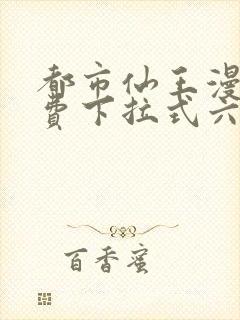 都市仙王漫
费下拉式六
百香蜜